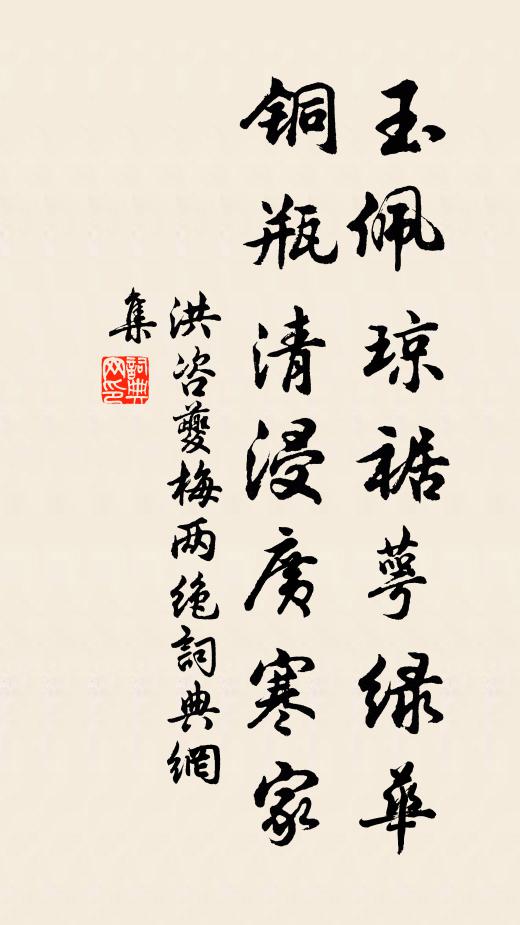 玉佩琼裾萼绿华
铜瓶清浸广寒家
洪咨夔梅两绝詞典網
集
詞典网印